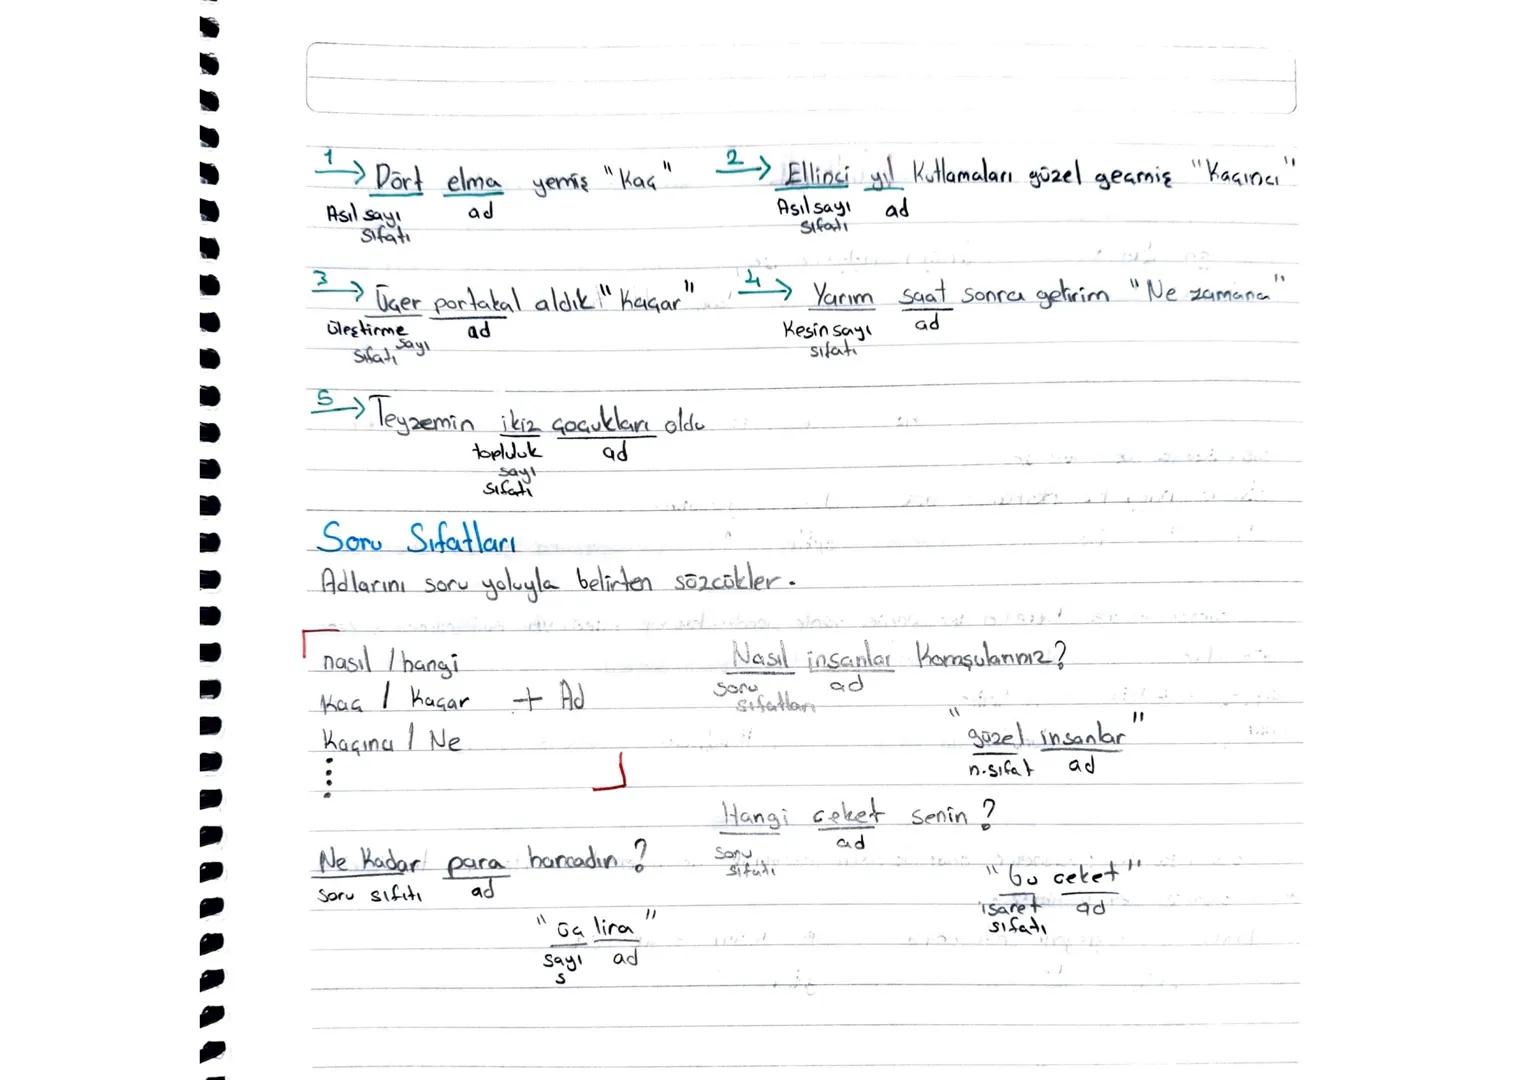 1 → Dört elma yemiş "Kaç"
Asıl sayı sıfatı ad
2 → Ellinci yıl Kutlamaları güzel geçmiş "Kaçıncı"
Asıl sayı sıfatı ad
3 → Üçer portakal aldık "Kaçar"
üleştirme sayı sıfatı ad
4 → Yarım saat sonra getirim "Ne zamana"
Kesin sayı sıfatı ad
5 → Teyzemin ikiz çocukları oldu
topluluk sayı sıfatı ad
Soru Sıfatları
Adlarını soru yoluyla belirten sözcükler.
nasıl / hangi
Kaç / Kaçar + Ad
Kaçıncı / Ne
Nasıl insanlar Komşularınız?
soru sıfatları ad
"güzel insanlar"
n.sıfat ad
Hangi ceket senin?
soru sıfatı ad
"bu ceket"
işaret sıfatı ad
Ne Kadar para harcadın?
soru sıfıtı ad
"üç lira"
sayı s ad